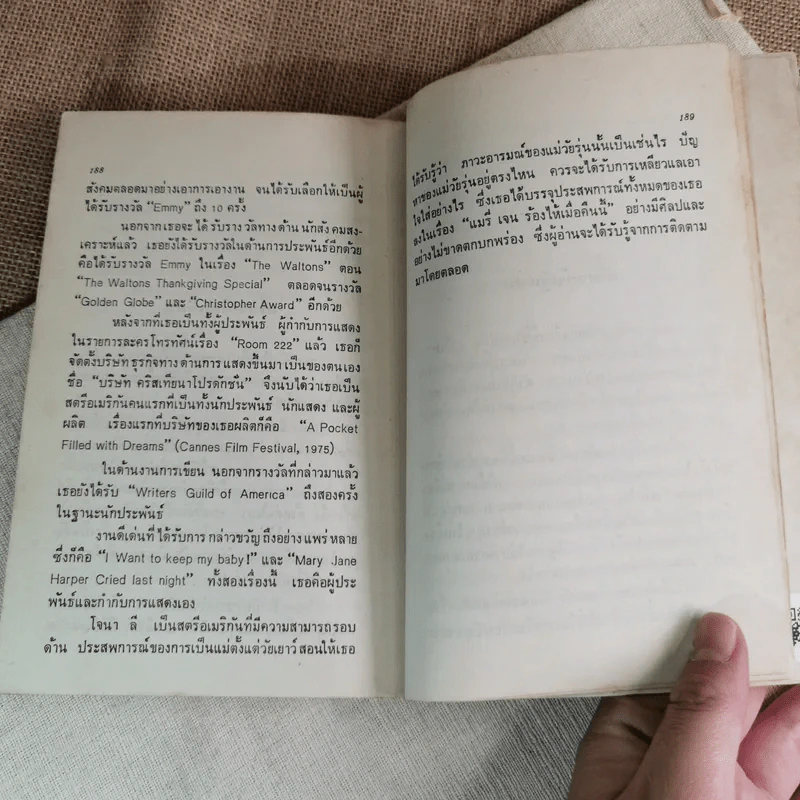 188
สังคมตลอดมาอย่างเอาการเอางาน จนได้รับเลือกให้เป็นผู้
ได้รับรางวัล "Emmy" ถึง 10 ครั้ง
นอกจากเธอจะ ได้ รับราง วัลทาง ด้าน นักสัง คมสง-
เคราะห์แล้ว เธอยังได้รับรางวัลในด้านการประพันธ์อีกด้วย
คือได้รับรางวัล Emmy ในเรื่อง "The Waltons" ตอน
"The Waltons Thankgiving Special" ตลอดจนรางวัล
"Golden Globe" และ "Christopher Award" อีกด้วย
หลังจากที่เธอเป็นทั้งผู้ประพันธ์ ผู้กำกับการแสดง
ในรายการละครโทรทัศน์เรื่อง "Room 222" แล้ว เธอก็
จัดตั้งบริษัท ธุรกิจทาง ด้านการ แสดงขึ้นมา เป็นของตนเอง
ชื่อ "บริษัท คริสเทียนาโปรดักชั่น" จึงนับได้ว่าเธอเป็น
สตรีอเมริกันคนแรกที่เป็นทั้งนักประพันธ์ นักแสดง และผู้
ผลิต เรื่องแรกที่บริษัทของเธอผลิตก็คือ "A Pocket
Filled with Dreams" (Cannes Film Festival, 1975)
ในด้านงานการเขียน นอกจากรางวัลที่กล่าวมาแล้ว
เธอยังได้รับ "Writers Guild of America" ถึงสองครั้ง
ในฐานะนักประพันธ์
งานดีเด่นที่ ได้รับการ กล่าวขวัญ ถึงอย่าง แพร่ หลาย
ซึ่งก็คือ "I Want to keep my baby!" และ "Mary Jane
Harper Cried last night" ทั้งสองเรื่องนี้ เธอคือผู้ประ
พันธ์และกำกับการแสดงเอง
โจนา ลี เป็นสตรีอเมริกันที่มีความสามารถรอบ
ด้าน ประสพการณ์ของการเป็นแม่ตั้งแต่วัยเยาว์ สอนให้เธอ
189
ได้รับรู้ว่า ภาวะอารมณ์ของแม่วัยรุ่นนั้นเป็นเช่นไร ปัญ
หาของแม่วัยรุ่นอยู่ตรงไหน ควรจะได้รับการเหลียวแลเอา
ใจใส่อย่างไร ซึ่งเธอได้บรรจุประสพการณ์ทั้งหมดของเธอ
ลงในเรื่อง "แมรี่ เจน ร้องไห้เมื่อคืนนี้" อย่างมีศิลปและ
อย่างไม่ขาดตกบกพร่อง ซึ่งผู้อ่านจะได้รับรู้จากการติดตาม
มาโดยตลอด